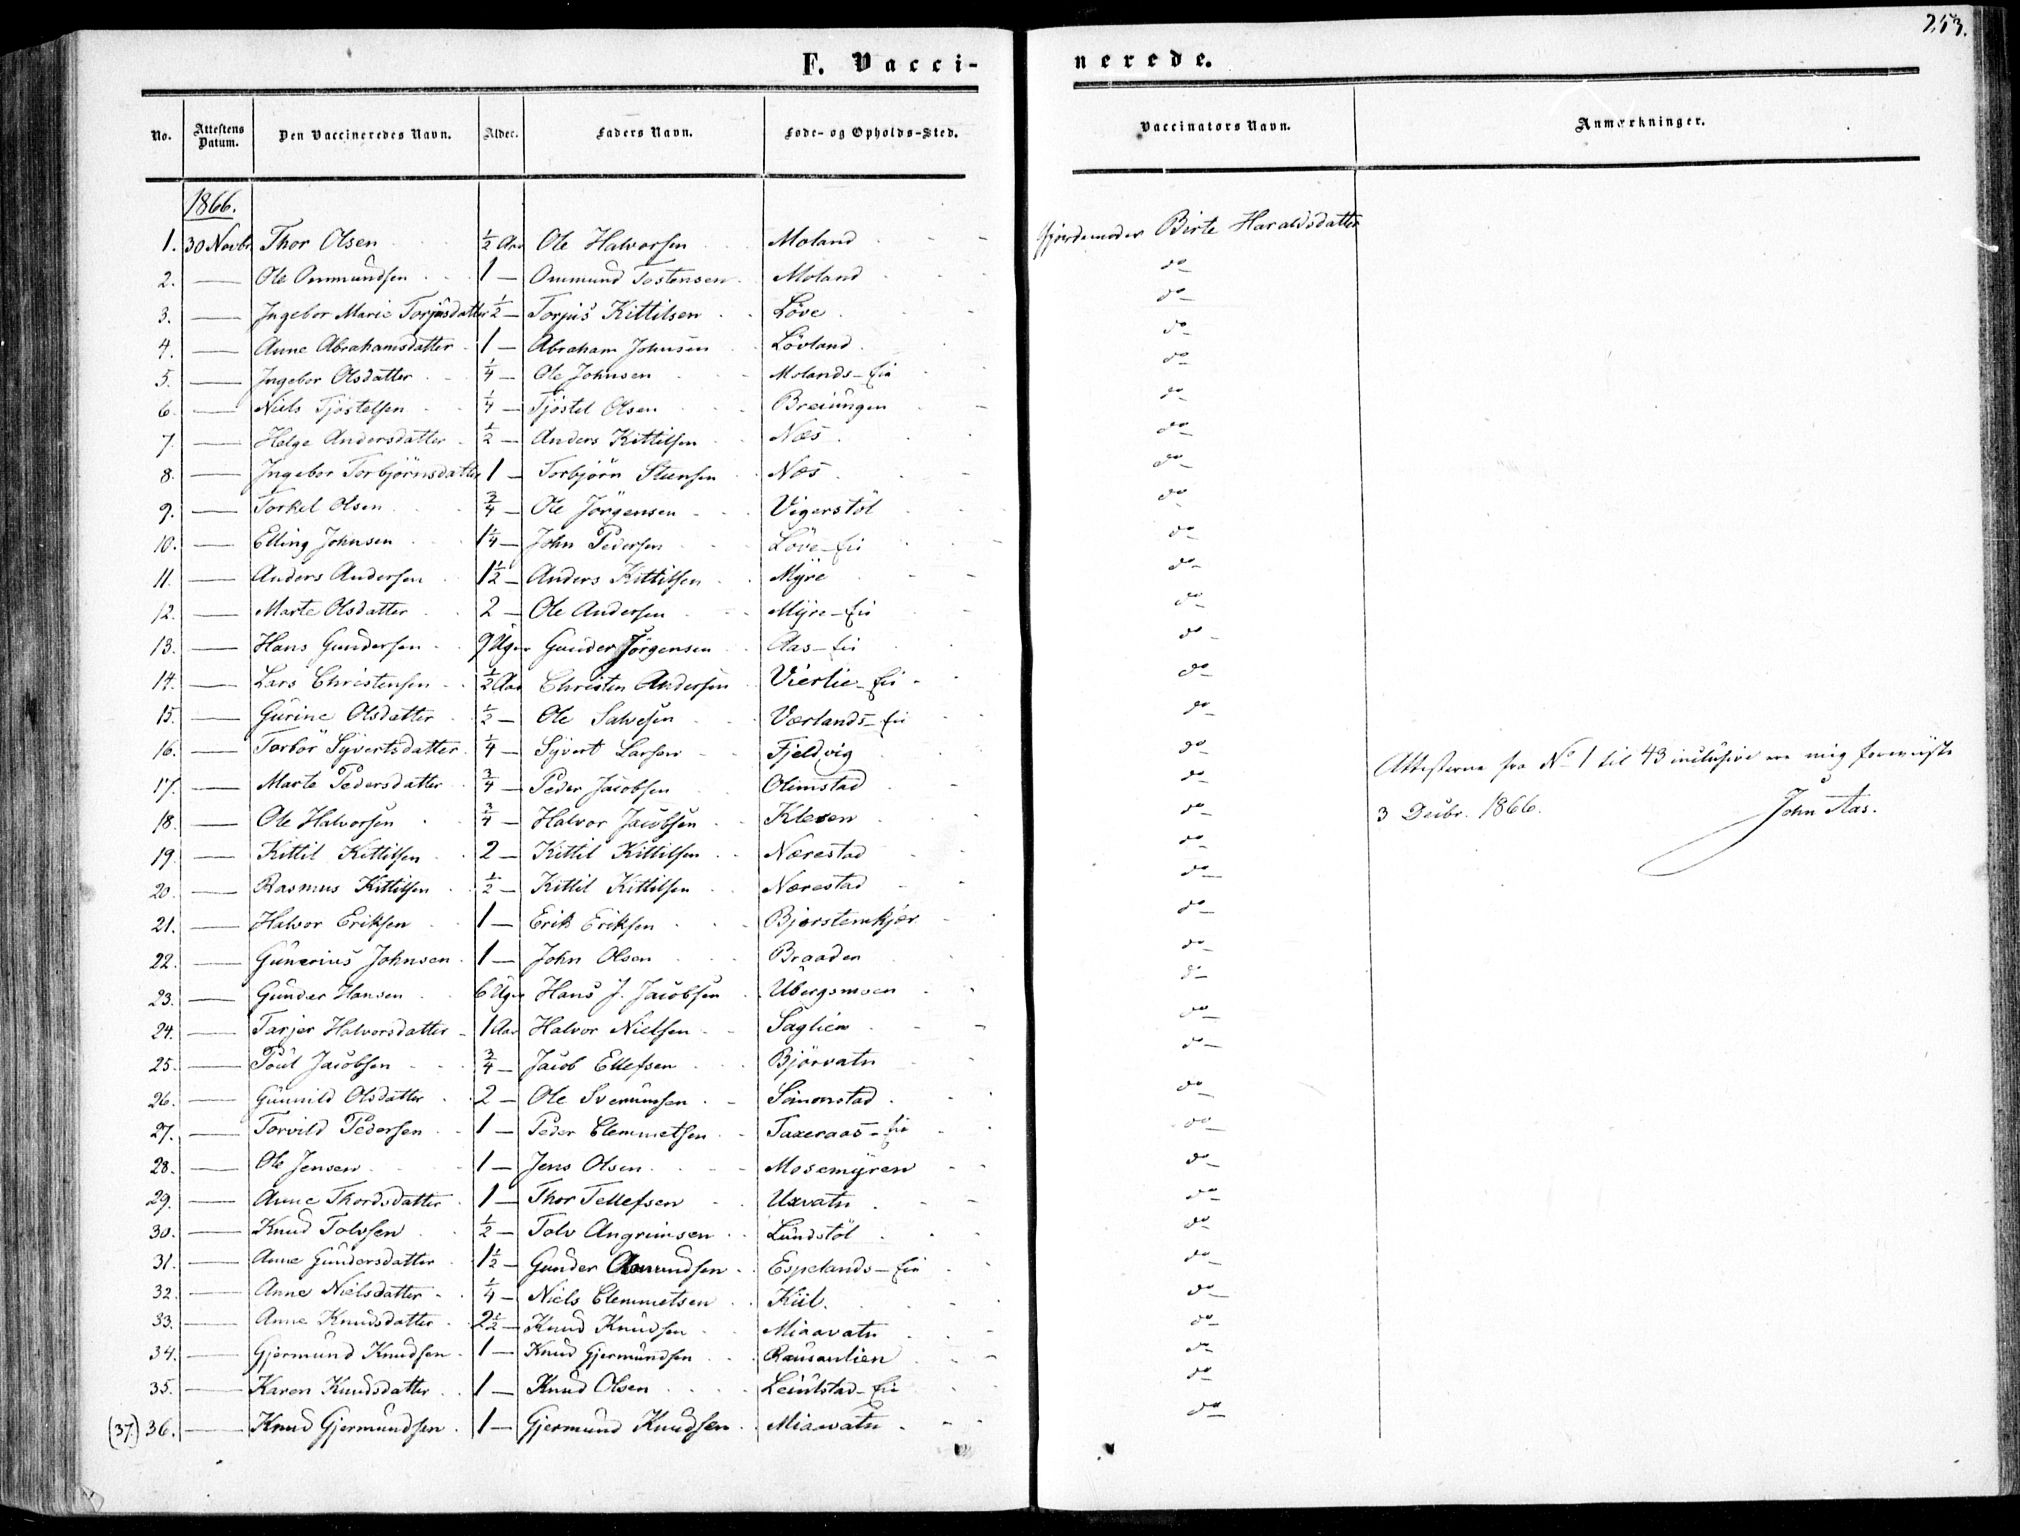 253.
F. Vacci-
nerede.
No. Attestens Datum. Den Vaccineredes Navn. Alder. Faders Navn. Føde- og Opholds-Sted. Vaccinators Navn. Anmærkninger.
1866.
1. 30 Novbr Thor Olsen ½ Aar Ole Halvorsen Moland Gjordemoder Birte Haraldsdatter
2. — Ole Ommundsen 1 — Ommund Tostensen Moland do
3. — Ingebor Marie Torjusdatter ½ — Torjus Kittilsen Løve do
4. — Anne Abrahamsdatter 1 — Abraham Johnsen Lövland do
5. — Ingebor Olsdatter ¼ — Ole Johnsen Molands-Eie do
6. — Niels Tjöstelsen ¼ — Tjöstel Olsen Breiungen do
7. — Helge Andersdatter ½ — Anders Kittilsen Næs do
8. — Ingebor Torbjörnsdatter 1 — Torbjörn Stensen Næs do
9. — Torkel Olsen ¾ — Ole Jörgensen Vigerstöl do
10. — Elling Johnsen 1¼ — John Pedersen Löve-Eie do
11. — Anders Andersen 1½ — Anders Kittilsen Myre do
12. — Marte Olsdatter 2 — Ole Andersen Myre-Eie do
13. — Hans Gundersen 9 Uger Gunder Jörgensen Aas-Eie do
14. — Lars Christensen ½ Aar Christen Andersen Vierlie-Eie do
15. — Gurine Olsdatter ½ — Ole Salvesen Værlands-Eie do
16. — Torbör Syvertsdatter ¼ — Syvert Larsen Fjeldvig do
Attesterne fra No 1 til 43 inclusive ere mig foreviste
17. — Marte Pedersdatter ¾ — Peder Jacobsen Olimstad do
18. — Ole Halvorsen ¾ — Halvor Jacobsen Kleven do 3 Decbr. 1866. John Aas.
19. — Kittil Kittilsen 2 — Kittil Kittilsen Nærestad do
20. — Rasmus Kittilsen ½ — Kittil Kittilsen Nærestad do
21. — Halvor Eriksen 1 — Erik Eriksen Bjorstemkjær do
22. — Gunerius Johnsen 1 — John Olsen Braaden do
23. — Gunder Hansen 6 Uger Hans J. Jacobsen Ubergsmoen do
24. — Tarjer Halvorsdatter 1 Aar Halvor Nielsen Saglien do
25. — Poul Jacobsen ¾ — Jacob Ellefsen Björvatn do
26. — Gunnild Olsdatter 2 — Ole Svenumsen Simonstad do
27. — Torvild Pedersen 1 — Peder Clemmetsen Taxeraas-Eie do
28. — Ole Jensen 1 — Jens Olsen Mosemyren do
29. — Anne Thordsdatter 1 — Thor Tellefsen Uxvatn do
30. — Knud Tolvsen ½ — Tolv Angrimsen Lundstöl do
31. — Anne Gundersdatter 1½ — Gunder Espelands-Eie do
32. — Anne Nielsdatter ¼ — Niels Clemmetsen Kiil do
33. — Anne Knudsdatter 2½ — Knud Knudsen Miaavatn do
34. — Gjermund Knudsen 1 — Knud Gjermundsen Rausanlien do
35. — Karen Knudsdatter 1 — Knud Olsen Leiulstad-Eie do
(37.) 36. — Knud Gjermundsen 1 — Gjermund Knudsen Miaavatn do